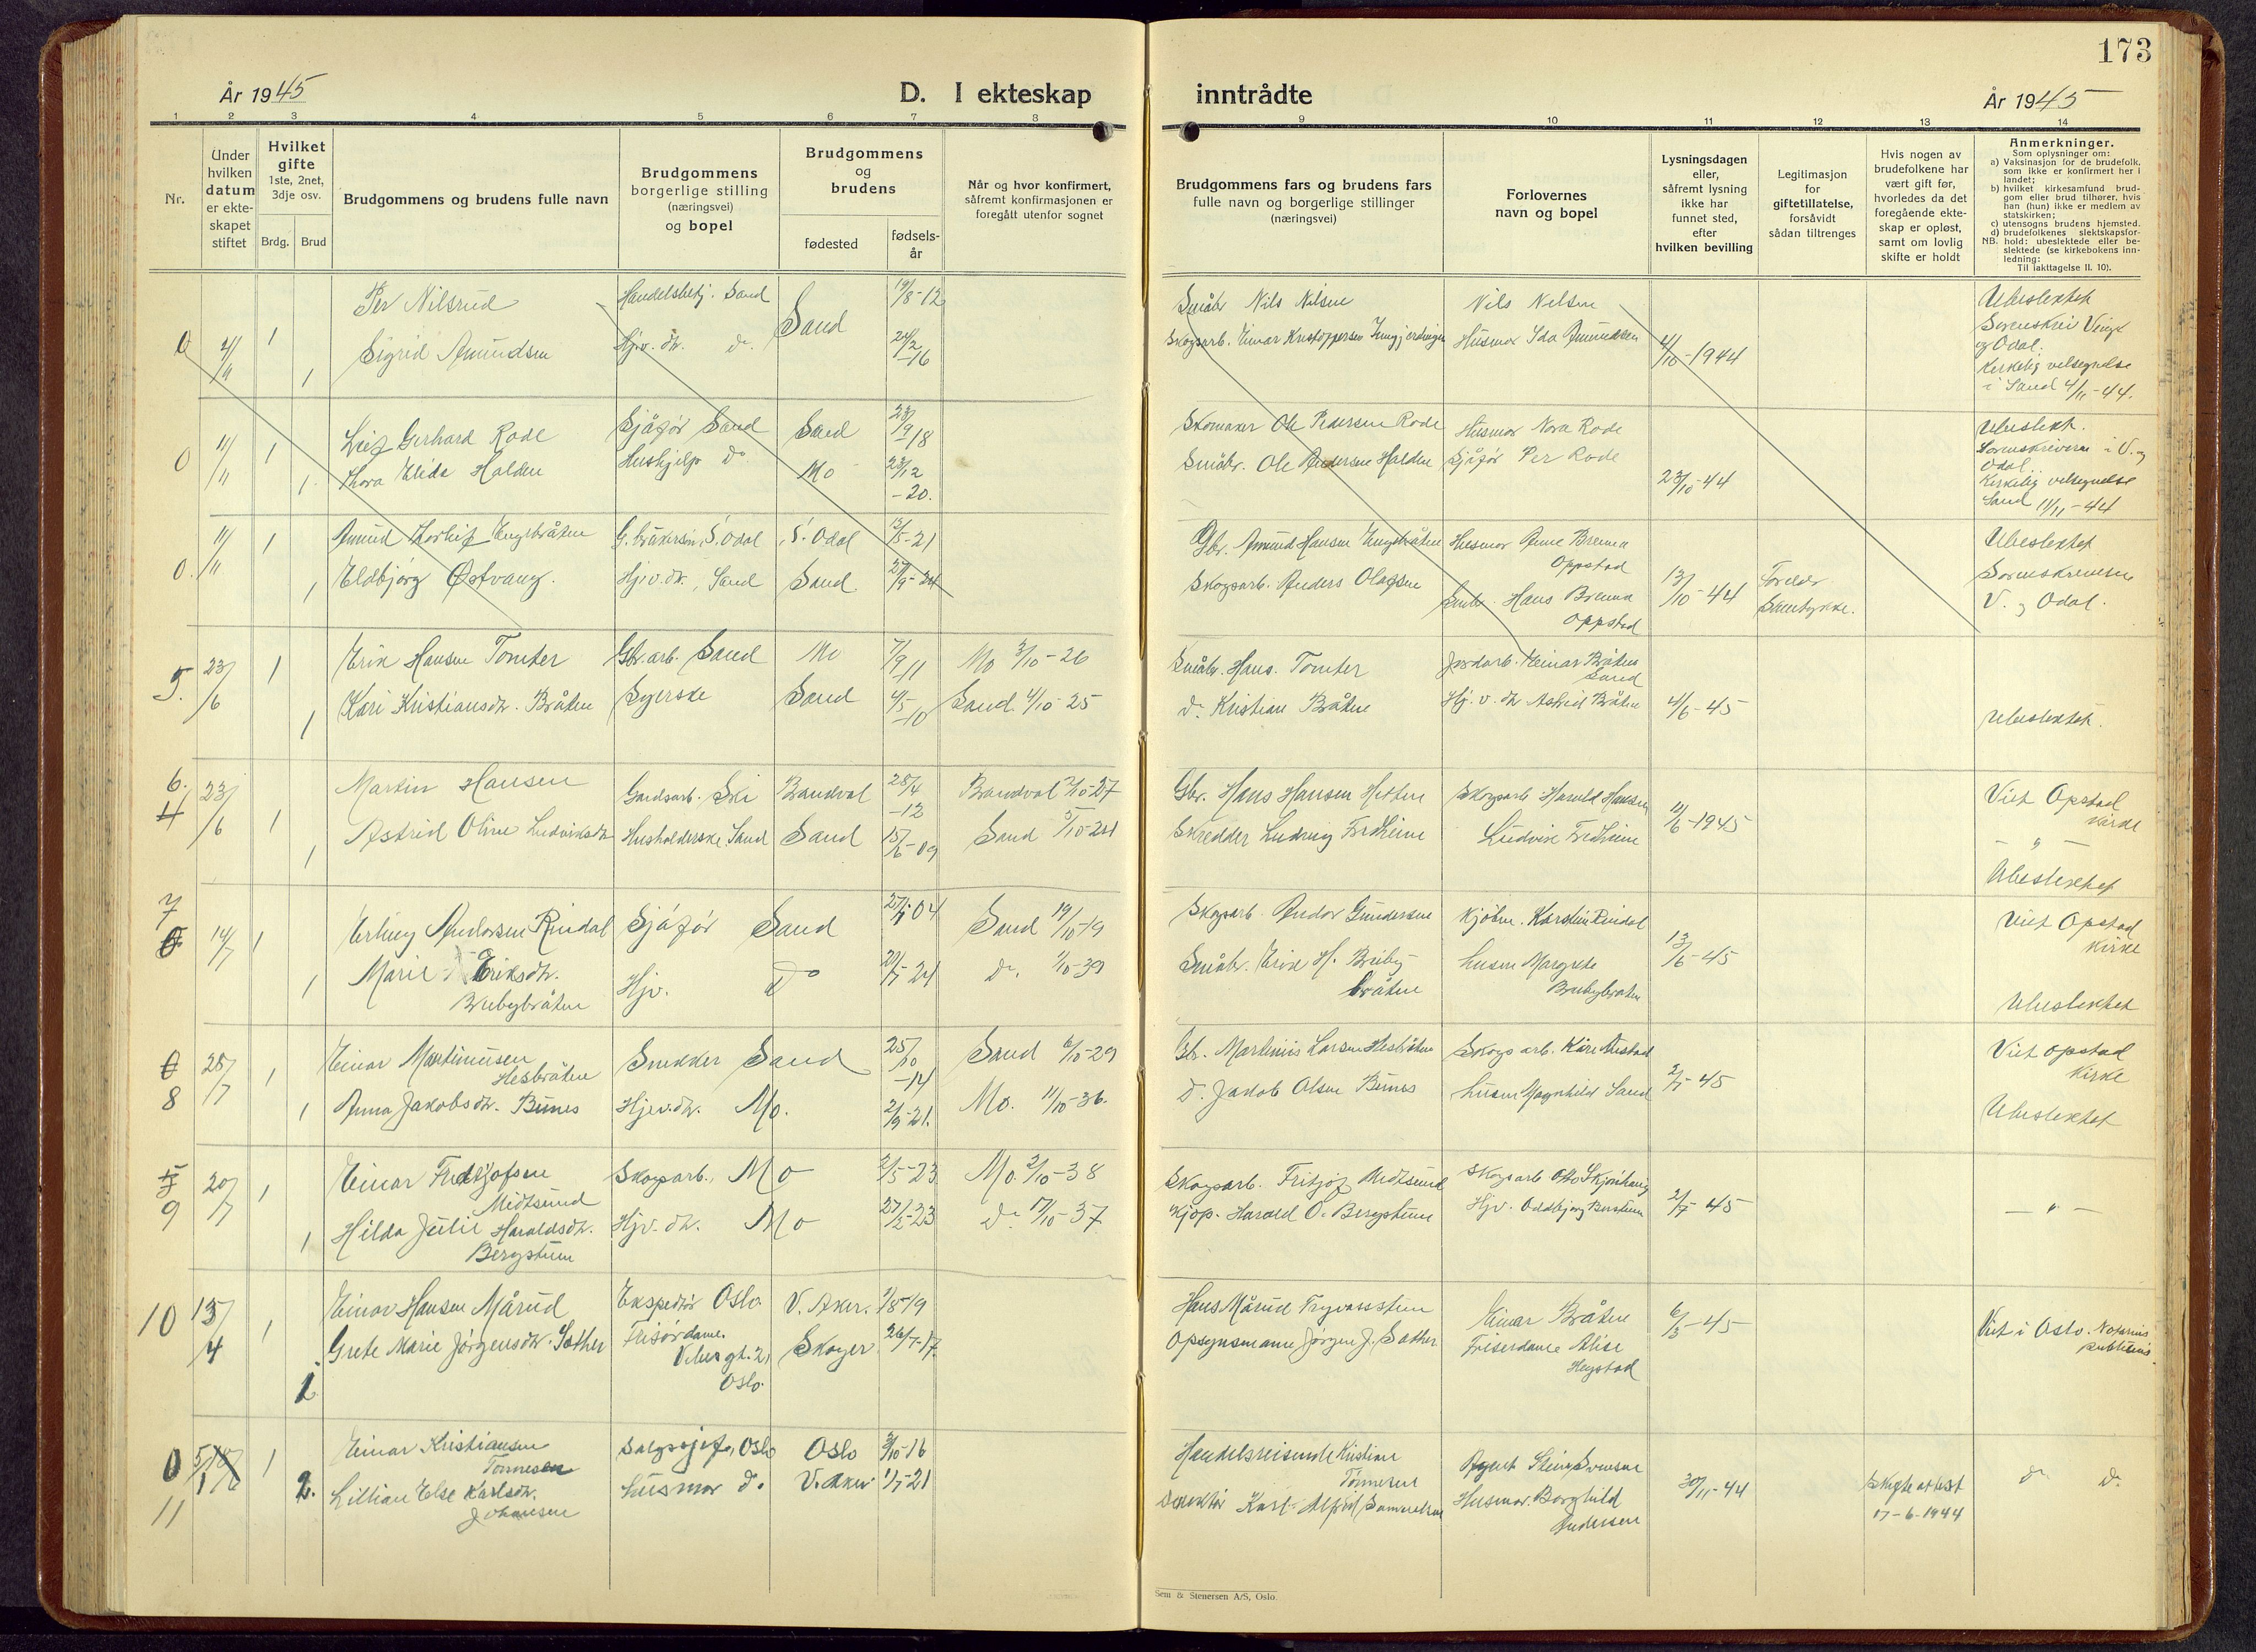 173
År 1945
D. I ekteskap inntrådte
År 1945
1 2 3 4 5 6 7 8 9 10 11 12 13 14
Nr.
Under
hvilken
datum
er ekte-
skapet
stiftet
Hvilket
gifte
1ste, 2net,
3dje osv.
Brdg. Brud
Brudgommens og brudens fulle navn
Brudgommens
borgerlige stilling
(næringsvei)
og bopel
Brudgommens
og
brudens
fødested
fødsels-
år
Når og hvor konfirmert,
såfremt konfirmasjonen er
foregått utenfor sognet
Brudgommens fars og brudens fars
fulle navn og borgerlige stillinger
(næringsvei)
Forlovernes
navn og bopel
Lysningsdagen
eller,
såfremt lysning
ikke har
funnet sted,
efter
hvilken bevilling
Legitimasjon
for
giftetillatelse,
forsåvidt
sådan tiltrenges
Hvis nogen av
brudefolkene har
vært gift før,
hvorledes da det
foregående ekte-
skap er opløst,
samt om lovlig
skifte er holdt
Anmerkninger.
Som oplysninger om:
a) Vaksinasjon for de brudefolk,
som ikke er konfirmert her i
landet;
b) hvilket kirkesamfund brud-
gom eller brud tilhører, hvis
han (hun) ikke er medlem av
statskirken;
c) utensogns brudens hjemsted.
d) brudefolkenes slektskapsfor-
NB. hold: ubeslektede eller be-
slektede (se kirkebokens inn-
ledning:
Til iakttagelse II. 10).
0 4/11 1 Per Nilsrud Handelsbetj. Sand Sand 19/8-12 Småbr. Nils Nilsen Nils Nilsen 4/10-1944 Ubeslektet
1 Sigrid Amundsen Hj.v.dr. do. 24/2-16 Skogsarb. Einar Kristoffersen Husmor Ida Amundsen Sorenskri Vinge
og Odal.
Kirkelig velsignelse
i Sand 4/11-44.
0 11/11 1 Leif Gerhard Rode Sjåfør Sand Sand 23/9 18 Skomaker Ole Pedersen Rode Husmor Nora Rode 23/10-44 Ubeslekt.
1 Thora Elida Halden Hushjelp do Mo 23/12-20. Småbr. Ole Andersen Halden Sjåfør Per Rode Sorenskriveren i V. og
Odal.
Kirkelig velsignelse
Sand 11/11-44
0. 11/11 1 Amund Torleif Engebråten G.brukersøn, S. Odal S. Odal 13/5-21 Gbr. Amund Hansen Husmor Anne Brenna
Oppstad 13/10-44 Ubeslektet
1 Eldbjørg Østvang. Hj.v.dr., Sand Sand 27/9-24 Skogsarb. Anders Olafsen Småbr. Hans Brenna
Oppstad Sorenskriveren
V. og Odal.
5. 23/6 1 Erik Hansen Tomter Gbr.arb. Sand Mo 7/9 11 Mo 3/10-26 Småbr. Hans. Tomter Jordarb. Einar Bråten
Sand 4/6-45
1 Kari Kristiansdr. Bråten Syerske Sand 4/5-10 Sand 4/10-25 do. Kristian Bråten Hj.v.dr. Astrid Bråten Ubeslektet.
6. 4 23/6 1 Martin Hansen Gardsarb. Ski Brandval 28/4-12 Brandval 2/10-27 Gbr. Hans Hansen Skogsarb Harald Hansen 11/6-1945 Viet Opstad
kirke
1 Astrid Oline Ludviksdr Husholderske Sand Sand 15/6-09 Sand 5/10-24 Skredder Ludvig Fredheim Ludvik Fredheim Ubeslektet
7 14/7 1 Erling Andersen Rindal Sjåfør Sand 04 Sand 19/10-19 Skogsarb. Andor Gundersen Kjøbm. Karsten Rindal 13/6-45 Viet Opstad
kirke
1 Marie Eriksdr.
Brubybråten Hjv. do 24 do. 1/10-39 Småbr. Erik H. Bruby-
bråten Husm Margrete
Brubybråten Ubeslektet
8 25/7 1 Einar Martinusen
Hesbråten Snekker Sand 25/10-14 Sand 6/10-29 Gbr. Martinus Larsen Hesbråten Skogsarb. Kåre 2/7-45 Viet opstad
kirke
1 Anna Jakobsdr. Bunes Hjv.dr. Mo. 2/9-21. Mo. 11/10-36. do. Jakob Olsen Bunes Husm Magnhild Sand Ubeslektet
9 20/7 1 Einar Fridtjofsen
Midtsund Skogsarb. Mo 2/5-23 Mo. 2/10-38 Skogsarb. Fritjof Midtsund Skogsarb Otto 2/7-45 — " —
1 Hilda Julie Haraldsdr.
Bergstuen Hjv.dr. Mo 27/2-23 do 17/10-37 Kjøp. Harald O. Bergstuen Hjv. Oddbjørg
10 13/4 1 Einar Hansen Mårud Ekspeditør Oslo V. Aker. 1/8-19 Hans Mårud Tryvasstuen Einar Bråten 6/3-45 Viet i Oslo. Notarius
publicus.
1 Grete Marie Jørgensdr. Sæther Frisørdame.
Oslo. Skoger 26/7-17. Opsynsmann Jørgen J. Sæther Friserdame Alise
Hegstad
0 11 1 Einar Kristiansen
Tønnesen Salgssjef, Oslo Oslo 3/10-16 Handelsreisende Kristian
Tønnesen Agent 30/11-44 Skifteattest
17-6-1944 do do
2. Lillian Else Karlsdr.
Johansen Husmor do. V. Aker 1/7-21 Direktør Karl Alfred Husmor. Borghild
Andersen
Sem & Stenersen A/S, Oslo.